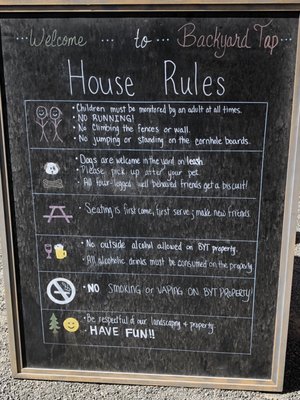 Welcome to Backyard Tap
House Rules
• Children must be monitored by an adult at all times.
• NO RUNNING!
• No Climbing the fences or wall.
• No jumping or standing on the cornhole boards.
• Dogs are welcome in the yard on leash.
• Please pick up after your pet.
• All four-legged well behaved friends get a biscuit!
• Seating is first come, first serve; make new friends
• No outside alcohol allowed on BYT property.
• All alcoholic drinks must be consumed on the property
• NO Smoking or VAPING ON BYT PROPERTY!
• Be respectful of our landscaping & property.
• HAVE FUN!!